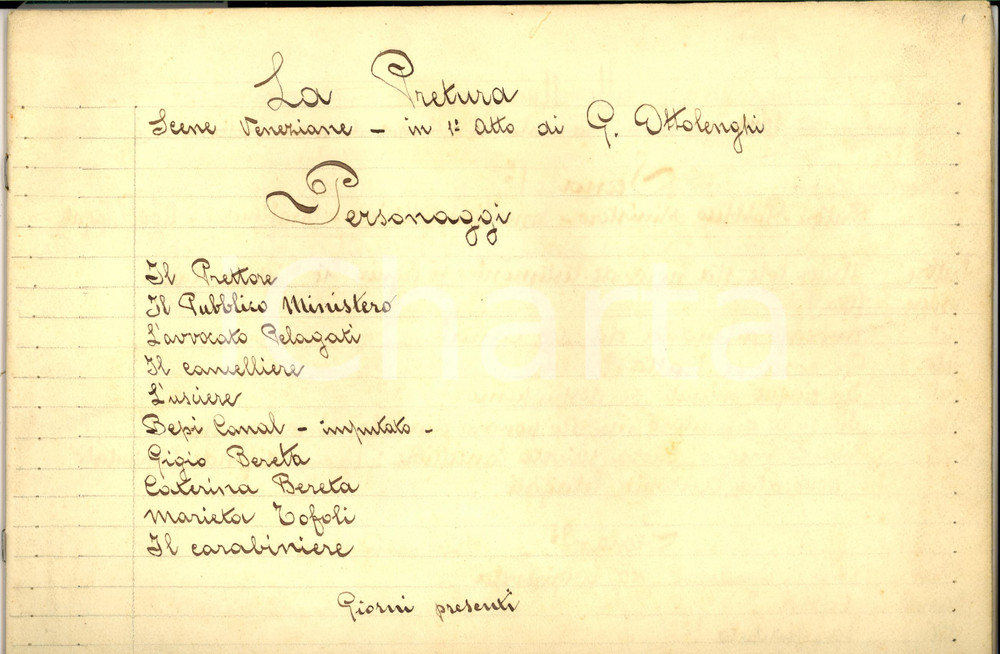 La Pretura
Scene Veneziane - in 1º Atto di G. Ottolenghi
Personaggi
Il Prettore
Il Pubblico Ministero
L'avvocato Pelagati
Il cancelliere
L'usciere
Bepi Canal - imputato -
Gigio Bereta
Caterina Bereta
Marieta Tofoli
Il carabiniere
Giorni presenti
iCharta